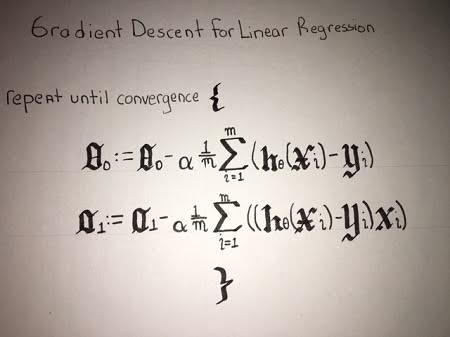 Gradient Descent for Linear Regression
repeat until convergence {
θ₀ := θ₀ - α 1/m ∑ᵢ₌₁ᵐ (hθ(xᵢ) - yᵢ)
θ₁ := θ₁ - α 1/m ∑ᵢ₌₁ᵐ ((hθ(xᵢ) - yᵢ)xᵢ)
}